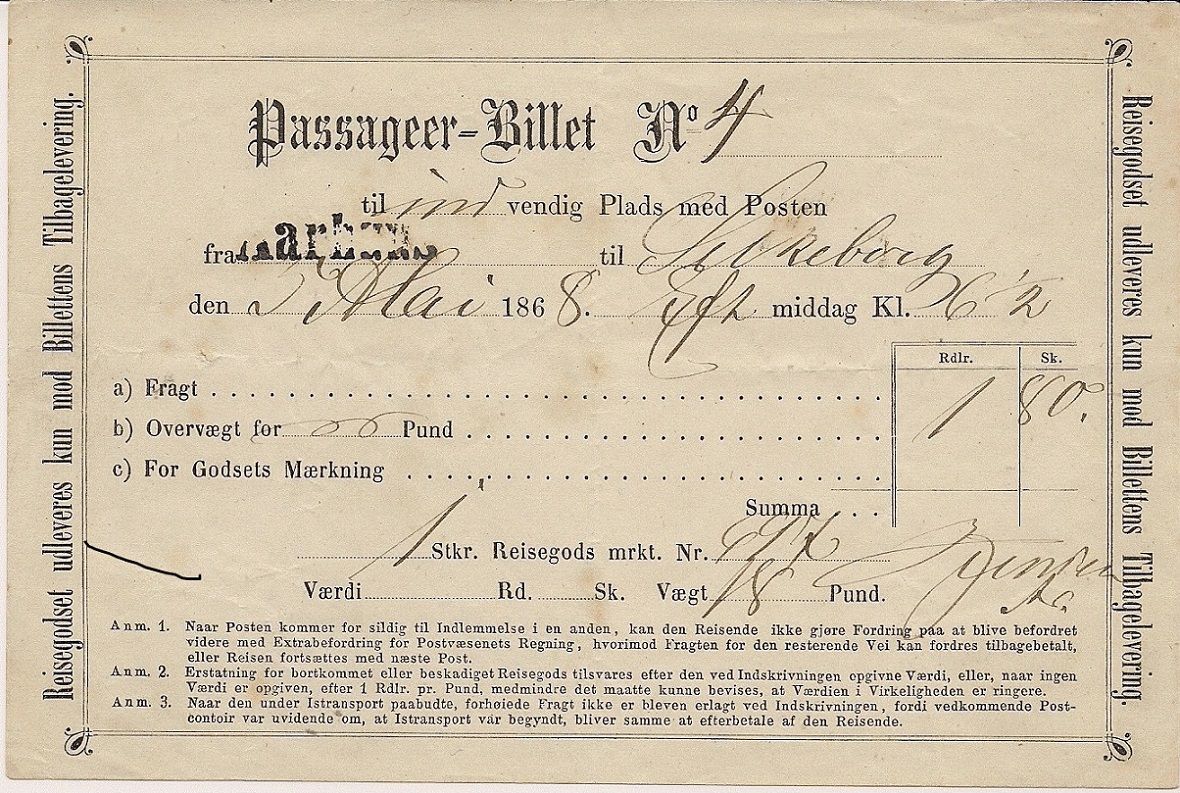 Passageer-Billet No 4
til ind vendig Plads med Posten
fra Aarhuus til Silkeborg
den 5 Mai 1868. Eft middag Kl. 6 1/2
Rdlr. Sk.
a) Fragt 1 80.
b) Overvægt for Pund
c) For Godsets Mærkning
Summa
1 Stkr. Reisegods mrkt. Nr.
Værdi Rd. Sk. Vægt 18 Pund.
Anm. 1. Naar Posten kommer for sildig til Indlemmelse i en anden, kan den Reisende ikke gjøre Fordring paa at blive befordret
videre med Extrabefordring for Postvæsenets Regning, hvorimod Fragten for den resterende Vei kan fordres tilbagebetalt,
eller Reisen fortsættes med næste Post.
Anm. 2. Erstatning for bortkommet eller beskadiget Reisegods tilsvares efter den ved Indskrivningen opgivne Værdi, eller, naar ingen
Værdi er opgiven, efter 1 Rdlr. pr. Pund, medmindre det maatte kunne bevises, at Værdien i Virkeligheden er ringere.
Anm. 3. Naar den under Istransport paabudte, forhøiede Fragt ikke er bleven erlagt ved Indskrivningen, fordi vedkommende Post-
contoir var uvidende om, at Istransport var begyndt, bliver samme at efterbetale af den Reisende.
Reisegodset udleveres kun mod Billettens Tilbagelevering.
Reisegodset udleveres kun mod Billettens Tilbagelevering.